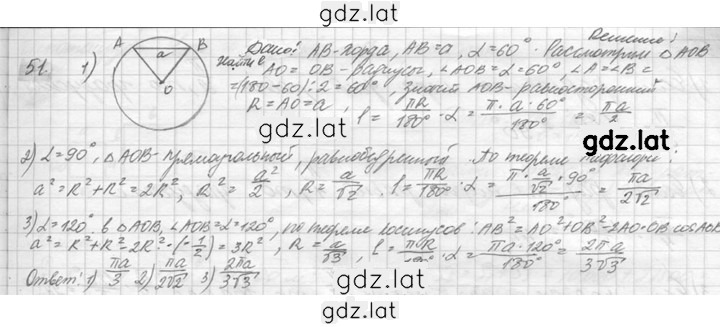 gdz.lat
Решение:
51. 1) A a B O Дано: AB-хорда, AB=a, α=60°. Рассмотрим △AOB
Найти ℓ AO=OB-радиусы, ∠AOB=α=60°, ∠A=∠B=
=(180-60):2=60°, значит AOB-равносторонний
R=AO=a, ℓ=πR/180°·α=π·a·60°/180°=πa/2
gdz.lat
2) α=90°, △AOB-прямоугольный, равнобедренный. По теореме Пифагора:
a²=R²+R²=2R², R²=a²/2, R=a/√2, ℓ=πR/180°·α=π·a/√2·90°/180°=πa/2√2
3) α=120° в △AOB, ∠AOB=α=120°, по теореме косинусов: AB²=AO²+OB²-2AO·OB cos
a²=R²+R²-2R²·(-1/2)=3R², R=a/√3, ℓ=πR/180°·α=πa·120°/180°=2πa/3√3
Ответ: 1) πa/3 2) πa/2√2 3) 2πa/3√3
gdz.lat